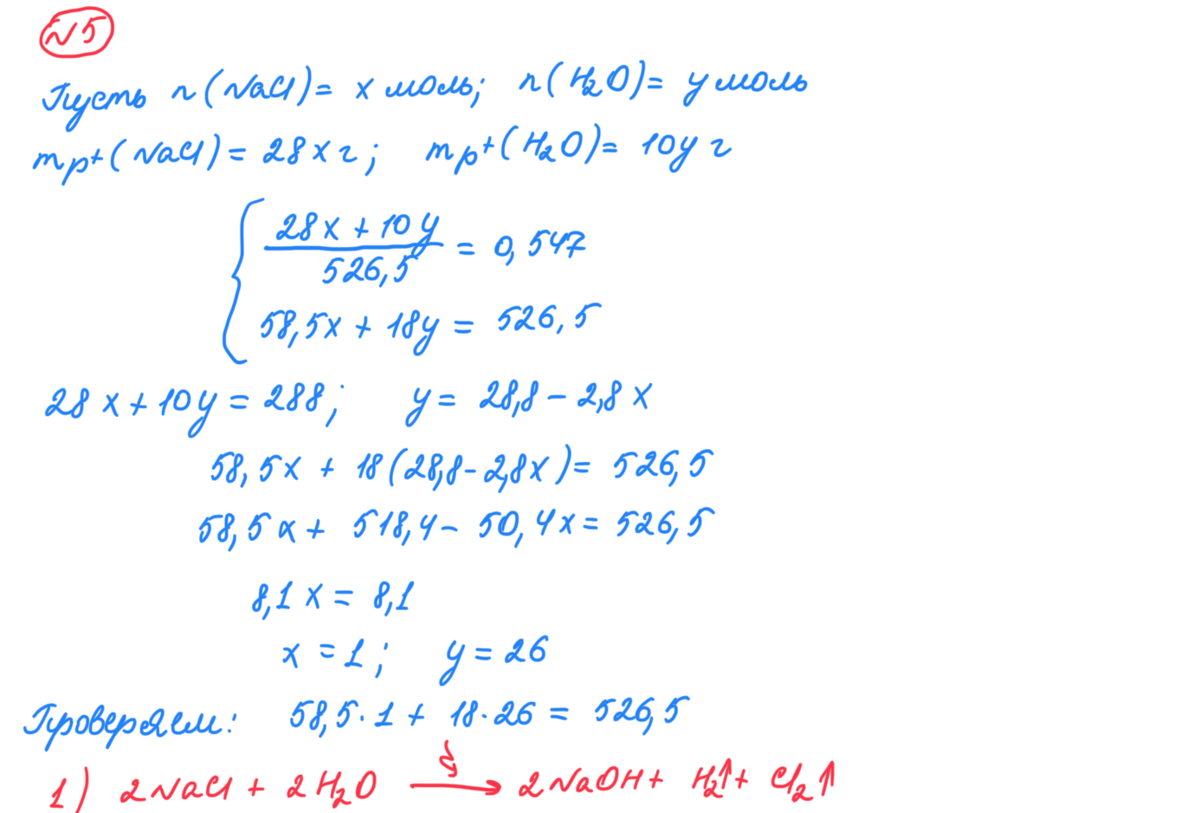 №5
Пусть n(NaCl)= x моль; n(H₂O)= y моль
mp⁺(NaCl)= 28x г; mp⁺(H₂O)= 10y г
{ (28x + 10y)/526,5 = 0,547
58,5x + 18y = 526,5
28x + 10y = 288; y = 28,8 - 2,8x
58,5x + 18(28,8-2,8x)= 526,5
58,5x + 518,4 - 50,4x = 526,5
8,1x = 8,1
x = 1; y = 26
Проверяем: 58,5·1 + 18·26 = 526,5
1) 2NaCl + 2H₂O ⟶ 2NaOH + H₂↑ + Cl₂↑